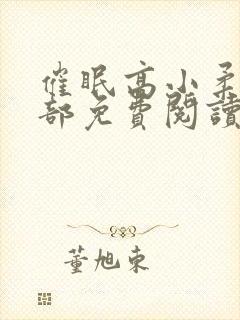 催眠高小柔
部免費閱讀
董旭東